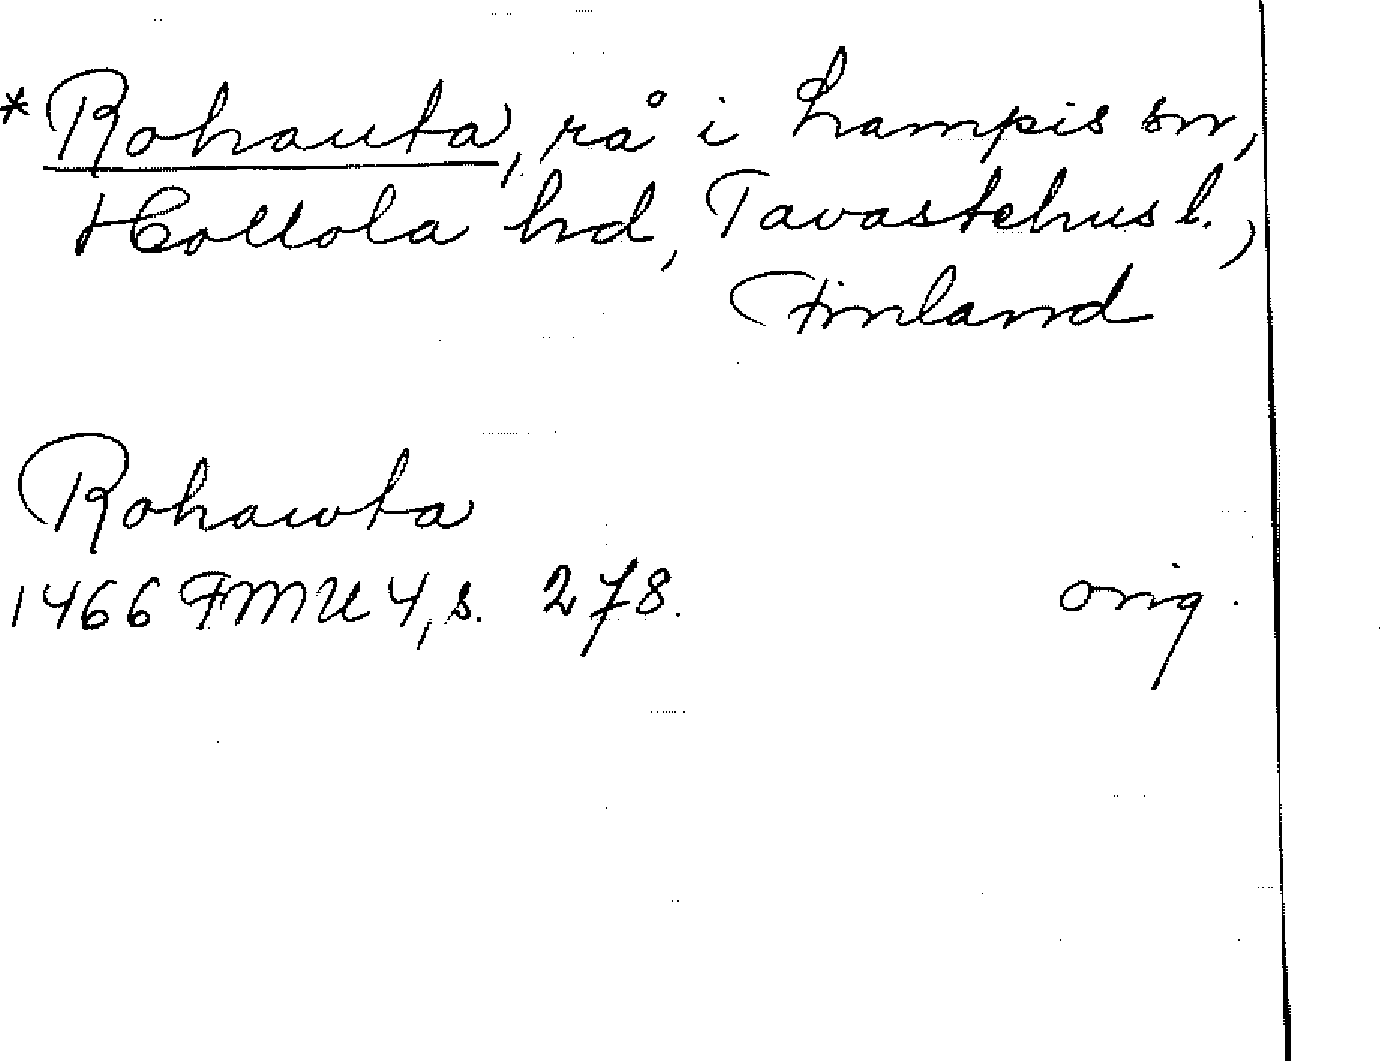 *Rohauta, rå i Lampis sn,
Hollola hd, Tavastehus l.,
Finland
Rohawta
1466 FMU 4, s. 278. orig.